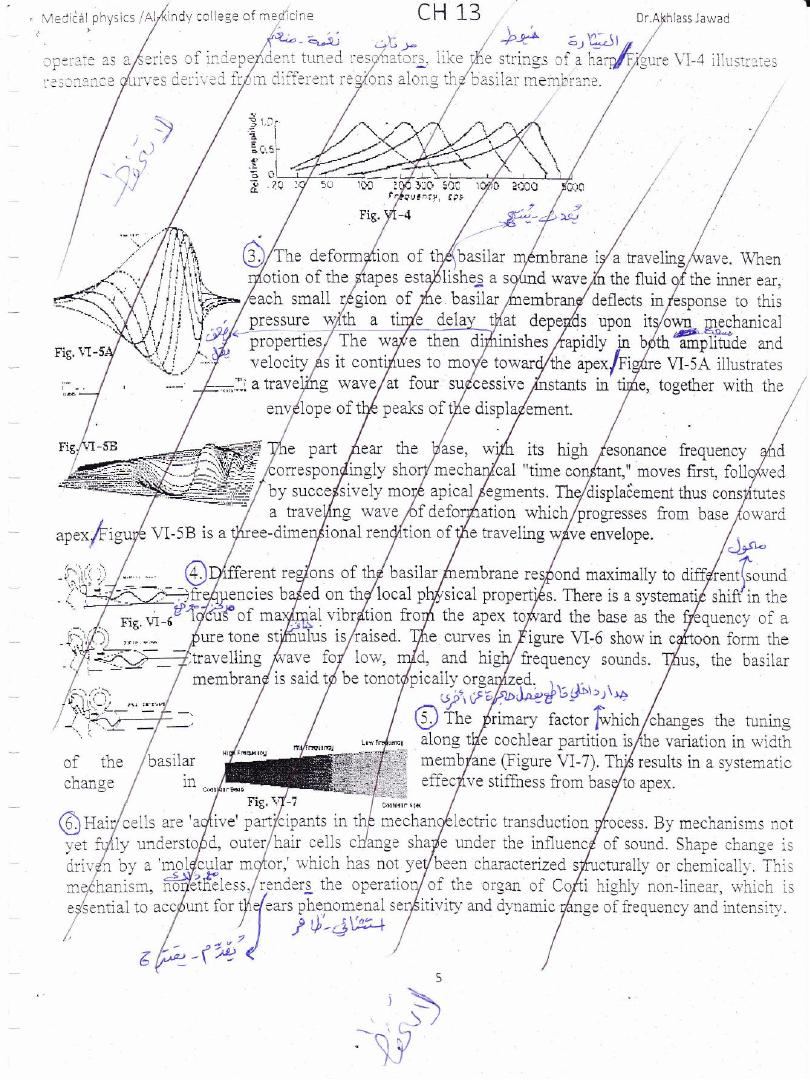 Medical physics /Al-kindy college of medicine
CH 13
Dr.Akhlass Jawad
نغمة - منغم
مرنات
خيوط
القيثارة
operate as a series of independent tuned resonators, like the strings of a harp/Figure VI-4 illustrates
resonance curves derived from different regions along the basilar membrane.
Relative amplitude
1.0
0.5
0
20 30 50 100 200 300 500 1000 2000 5000
Frequency, cps
Fig. VI-4
3. The deformation of the basilar membrane is a traveling wave. When
motion of the stapes establishes a sound wave in the fluid of the inner ear,
each small region of the basilar membrane deflects in response to this
pressure with a time delay that depends upon its own mechanical
properties. The wave then diminishes rapidly in both amplitude and
velocity as it continues to move toward the apex/Figure VI-5A illustrates
a traveling wave at four successive instants in time, together with the
envelope of the peaks of the displacement.
يقل
Fig. VI-5A
Fig. VI-5B
The part near the base, with its high resonance frequency and
correspondingly short mechanical "time constant," moves first, followed
by successively more apical segments. The displacement thus constitutes
a traveling wave of deformation which progresses from base toward
apex/Figure VI-5B is a three-dimensional rendition of the traveling wave envelope.
4. Different regions of the basilar membrane respond maximally to different sound
frequencies based on the local physical properties. There is a systematic shift in the
locus of maximal vibration from the apex toward the base as the frequency of a
pure tone stimulus is raised. The curves in Figure VI-6 show in cartoon form the
travelling wave for low, mid, and high frequency sounds. Thus, the basilar
membrane is said to be tonotopically organized.
Fig. VI-6
حافز
5. The primary factor which changes the tuning
along the cochlear partition is the variation in width
of the basilar membrane (Figure VI-7). This results in a systematic
change in effective stiffness from base to apex.
High Frequency
Mid Frequency
Low Frequency
Cochlear Base
Fig. VI-7
Cochlear Apex
6. Hair cells are 'active' participants in the mechanoelectric transduction process. By mechanisms not
yet fully understood, outer hair cells change shape under the influence of sound. Shape change is
driven by a 'molecular motor,' which has not yet been characterized structurally or chemically. This
mechanism, nonetheless, renders the operation of the organ of Corti highly non-linear, which is
essential to account for the ears phenomenal sensitivity and dynamic range of frequency and intensity.
يُقدّم - يقترح
5